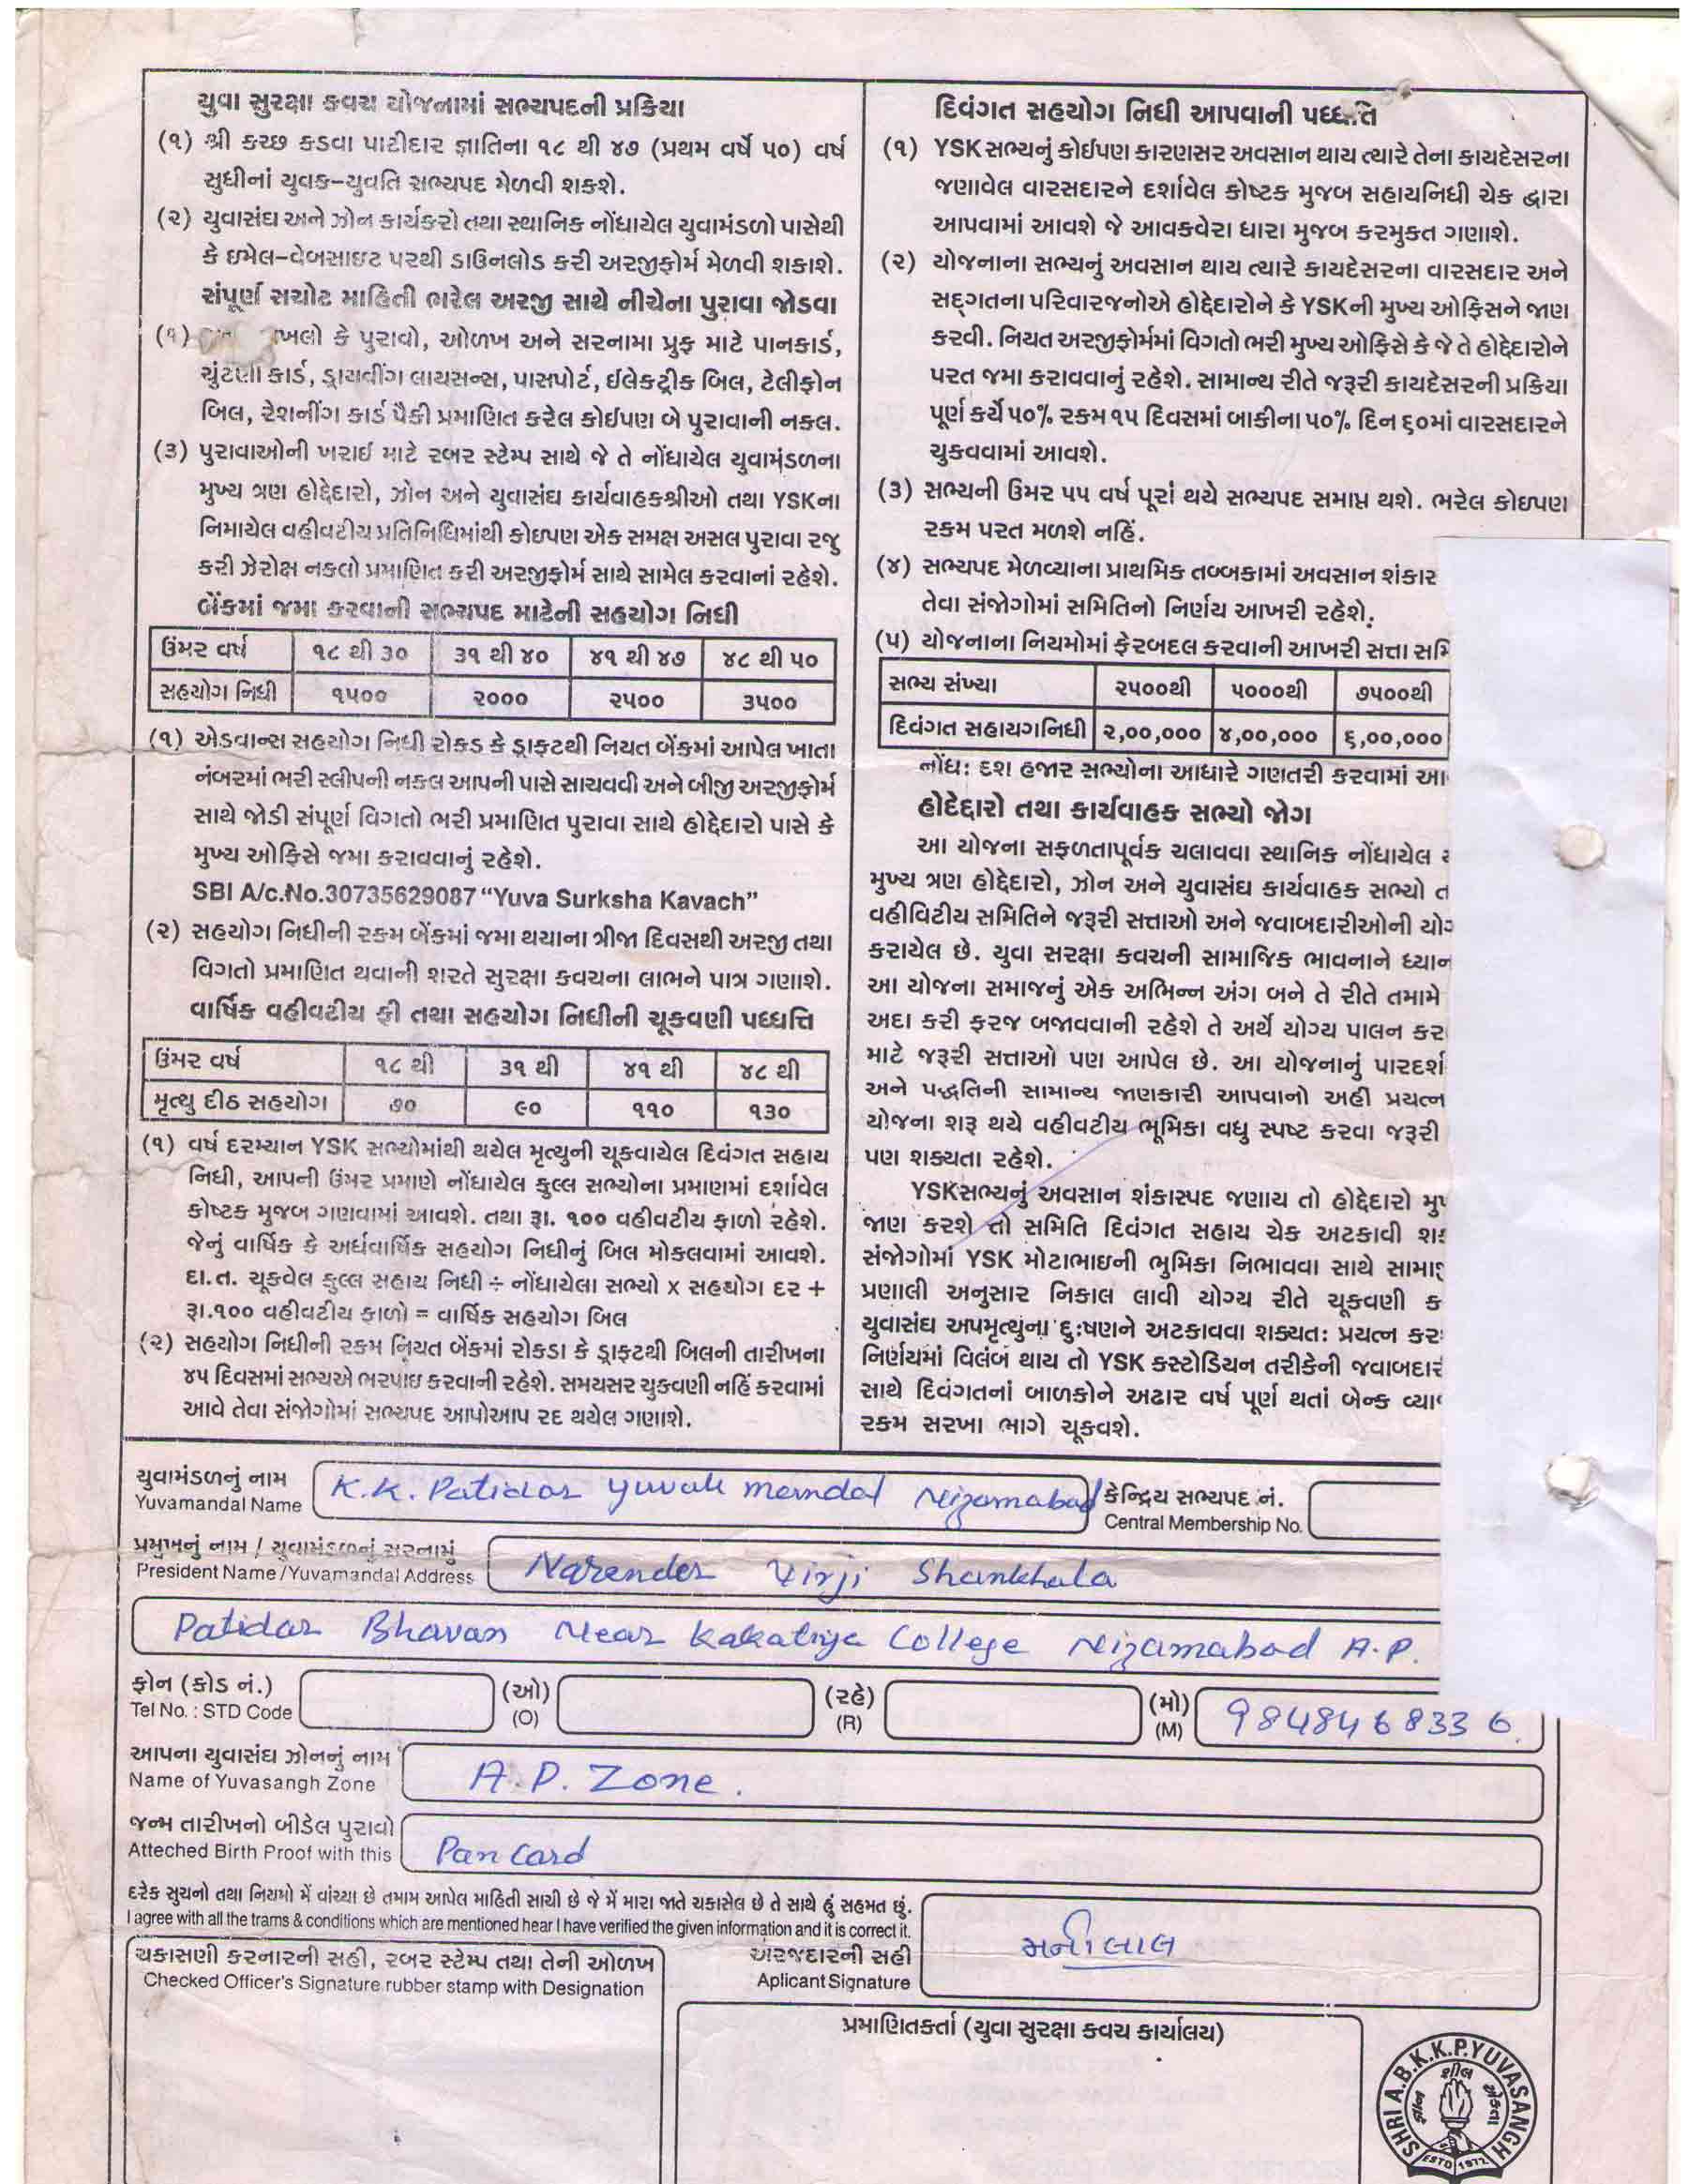 યુવા સુરક્ષા કવચ યોજનામાં સભ્યપદની પ્રક્રિયા
(૧) શ્રી કચ્છ કડવા પાટીદાર જ્ઞાતિના ૧૮ થી ૪૭ (પ્રથમ વર્ષે ૫૦) વર્ષ
સુધીનાં યુવક-યુવતિ સભ્યપદ મેળવી શકશે.
(૨) યુવાસંઘ અને ઝોન કાર્યકરો તથા સ્થાનિક નોંધાયેલ યુવામંડળો પાસેથી
કે ઇમેલ-વેબસાઇટ પરથી ડાઉનલોડ કરી અરજીફોર્મ મેળવી શકાશે.
સંપૂર્ણ સચોટ માહિતી ભરેલ અરજી સાથે નીચેના પુરાવા જોડવા
(૧) ખલો કે પુરાવો, ઓળખ અને સરનામા પ્રુફ માટે પાનકાર્ડ,
ચુંટણી કાર્ડ, ડ્રાયવીંગ લાયસન્સ, પાસપોર્ટ, ઈલેકટ્રીક બિલ, ટેલીફોન
બિલ, રેશનીંગ કાર્ડ પૈકી પ્રમાણિત કરેલ કોઈપણ બે પુરાવાની નકલ.
(૩) પુરાવાઓની ખરાઈ માટે રબર સ્ટેમ્પ સાથે જે તે નોંધાયેલ યુવામંડળના
મુખ્ય ત્રણ હોદ્દેદારો, ઝોન અને યુવાસંઘ કાર્યવાહકશ્રીઓ તથા YSKના
નિમાયેલ વહીવટીય પ્રતિનિધિમાંથી કોઇપણ એક સમક્ષ અસલ પુરાવા રજુ
કરી ઝેરોક્ષ નકલો પ્રમાણિત કરી અરજીફોર્મ સાથે સામેલ કરવાનાં રહેશે.
બેંકમાં જમા કરવાની સભ્યપદ માટેની સહયોગ નિધી
ઉંમર વર્ષ ૧૮ થી ૩૦ ૩૧ થી ૪૦ ૪૧ થી ૪૭ ૪૮ થી ૫૦
સહયોગ નિધી ૧૫૦૦ ૨૦૦૦ ૨૫૦૦ ૩૫૦૦
(૧) એડવાન્સ સહયોગ નિધી રોકડ કે ડ્રાફ્ટથી નિયત બેંકમાં આપેલ ખાતા
નંબરમાં ભરી સ્લીપની નકલ આપની પાસે સાચવવી અને બીજી અરજીફોર્મ
સાથે જોડી સંપૂર્ણ વિગતો ભરી પ્રમાણિત પુરાવા સાથે હોદ્દેદારો પાસે કે
મુખ્ય ઓફિસે જમા કરાવવાનું રહેશે.
SBI A/c.No.30735629087 “Yuva Surksha Kavach”
(૨) સહયોગ નિધીની રકમ બેંકમાં જમા થયાના ત્રીજા દિવસથી અરજી તથા
વિગતો પ્રમાણિત થવાની શરતે સુરક્ષા કવચના લાભને પાત્ર ગણાશે.
વાર્ષિક વહીવટીય ફી તથા સહયોગ નિધીની ચૂકવણી પધ્ધત્તિ
ઉંમર વર્ષ ૧૮ થી ૩૧ થી ૪૧ થી ૪૮ થી
મૃત્યુ દીઠ સહયોગ ૭૦ ૯૦ ૧૧૦ ૧૩૦
(૧) વર્ષ દરમ્યાન YSK સભ્યોમાંથી થયેલ મૃત્યુની ચૂકવાયેલ દિવંગત સહાય
નિધી, આપની ઉંમર પ્રમાણે નોંધાયેલ કુલ્લ સભ્યોના પ્રમાણમાં દર્શાવેલ
કોષ્ટક મુજબ ગણવામાં આવશે. તથા રૂા. ૧૦૦ વહીવટીય ફાળો રહેશે.
જેનું વાર્ષિક કે અર્ધવાર્ષિક સહયોગ નિધીનું બિલ મોકલવામાં આવશે.
દા.ત. ચૂકવેલ કુલ્લ સહાય નિધી ÷ નોંધાયેલા સભ્યો x સહયોગ દર +
રૂા.૧૦૦ વહીવટીય ફાળો = વાર્ષિક સહયોગ બિલ
(૨) સહયોગ નિધીની રકમ નિયત બેંકમાં રોકડા કે ડ્રાફ્ટથી બિલની તારીખના
૪૫ દિવસમાં સભ્યએ ભરપાઇ કરવાની રહેશે. સમયસર ચુકવણી નહિં કરવામાં
આવે તેવા સંજોગોમાં સભ્યપદ આપોઆપ રદ થયેલ ગણાશે.
દિવંગત સહયોગ નિધી આપવાની પધ્ધતિ
(૧) YSK સભ્યનું કોઈપણ કારણસર અવસાન થાય ત્યારે તેના કાયદેસરના
જણાવેલ વારસદારને દર્શાવેલ કોષ્ટક મુજબ સહાયનિધી ચેક દ્વારા
આપવામાં આવશે જે આવકવેરા ધારા મુજબ કરમુકત ગણાશે.
(૨) યોજનાના સભ્યનું અવસાન થાય ત્યારે કાયદેસરના વારસદાર અને
સદ્ગતના પરિવારજનોએ હોદ્દેદારોને કે YSKની મુખ્ય ઓફિસને જાણ
કરવી. નિયત અરજીફોર્મમાં વિગતો ભરી મુખ્ય ઓફિસે કે જે તે હોદ્દેદારોને
પરત જમા કરાવવાનું રહેશે. સામાન્ય રીતે જરૂરી કાયદેસરની પ્રકિયા
પૂર્ણ કર્યે ૫૦% રકમ ૧૫ દિવસમાં બાકીના ૫૦% દિન ૬૦માં વારસદારને
ચુકવવામાં આવશે.
(૩) સભ્યની ઉમર ૫૫ વર્ષ પૂરાં થયે સભ્યપદ સમાપ્ત થશે. ભરેલ કોઇપણ
રકમ પરત મળશે નહિં.
(૪) સભ્યપદ મેળવ્યાના પ્રાથમિક તબ્બકામાં અવસાન શંકાર
તેવા સંજોગોમાં સમિતિનો નિર્ણય આખરી રહેશે.
(૫) યોજનાના નિયમોમાં ફેરબદલ કરવાની આખરી સત્તા સમિ
સભ્ય સંખ્યા ૨૫૦૦થી ૫૦૦૦થી ૭૫૦૦થી
દિવંગત સહાયગનિધી ૨,૦૦,૦૦૦ ૪,૦૦,૦૦૦ ૬,૦૦,૦૦૦
નોંધ: દશ હજાર સભ્યોના આધારે ગણતરી કરવામાં આ
હોદેદ્દારો તથા કાર્યવાહક સભ્યો જોગ
આ યોજના સફળતાપૂર્વક ચલાવવા સ્થાનિક નોંધાયેલ
મુખ્ય ત્રણ હોદ્દેદારો, ઝોન અને યુવાસંઘ કાર્યવાહક સભ્યો ત
વહીવિટીય સમિતિને જરૂરી સત્તાઓ અને જવાબદારીઓની યોગ
કરાયેલ છે. યુવા સરક્ષા કવચની સામાજિક ભાવનાને ધ્યાન
આ યોજના સમાજનું એક અભિન્ન અંગ બને તે રીતે તમામે
અદા કરી ફરજ બજાવવાની રહેશે તે અર્થે યોગ્ય પાલન કર
માટે જરૂરી સત્તાઓ પણ આપેલ છે. આ યોજનાનું પારદર્શ
અને પદ્ધતિની સામાન્ય જાણકારી આપવાનો અહીં પ્રયત્ન
યોજના શરૂ થયે વહીવટીય ભૂમિકા વધુ સ્પષ્ટ કરવા જરૂરી
પણ શક્યતા રહેશે.
YSKસભ્યનું અવસાન શંકાસ્પદ જણાય તો હોદ્દેદારો મુ
જાણ કરશે તો સમિતિ દિવંગત સહાય ચેક અટકાવી શ
સંજોગોમાં YSK મોટાભાઇની ભુમિકા નિભાવવા સાથે સામા
પ્રણાલી અનુસાર નિકાલ લાવી યોગ્ય રીતે ચૂકવણી ક
યુવાસંઘ અપમૃત્યુંના દુઃષણને અટકાવવા શક્યતઃ પ્રયત્ન કર
નિર્ણયમાં વિલંબ થાય તો YSK કસ્ટોડિયન તરીકેની જવાબદાર
સાથે દિવંગતનાં બાળકોને અઢાર વર્ષ પૂર્ણ થતાં બેન્ક વ્યા
રકમ સરખા ભાગે ચૂકવશે.
યુવામંડળનું નામ
Yuvamandal Name K.K. Patidar yuvak mandal Nizamabad
કેન્દ્રિય સભ્યપદ નં.
Central Membership No.
પ્રમુખનું નામ / યુવામંડળનું સરનામું
President Name/Yuvamandal Address Narender Virji Shankhala
Patidar Bhavan Near Kakatiya College Nizamabad A.P.
ફોન (કોડ નં.) (ઓ) (રહે) (મો)
Tel No. : STD Code (O) (R) (M) 9848468336
આપના યુવાસંઘ ઝોનનું નામ
Name of Yuvasangh Zone A.P. Zone.
જન્મ તારીખનો બીડેલ પુરાવો
Atteched Birth Proof with this Pan Card
દરેક સુચનો તથા નિયમો મેં વાંચ્યા છે તમામ આપેલ માહિતી સાચી છે જે મેં મારા જાતે ચકાસેલ છે તે સાથે હું સહમત છું.
I agree with all the trams & conditions which are mentioned hear I have verified the given information and it is correct it.
ચકાસણી કરનારની સહી, રબર સ્ટેમ્પ તથા તેની ઓળખ
Checked Officer's Signature rubber stamp with Designation
અરજદારની સહી
Aplicant Signature મનીલાલ
પ્રમાણિતકર્તા (યુવા સુરક્ષા કવચ કાર્યાલય)
SHRI A.B.K.K.P.YUVASANGH
શીલ
એકતા
ESTD 1972